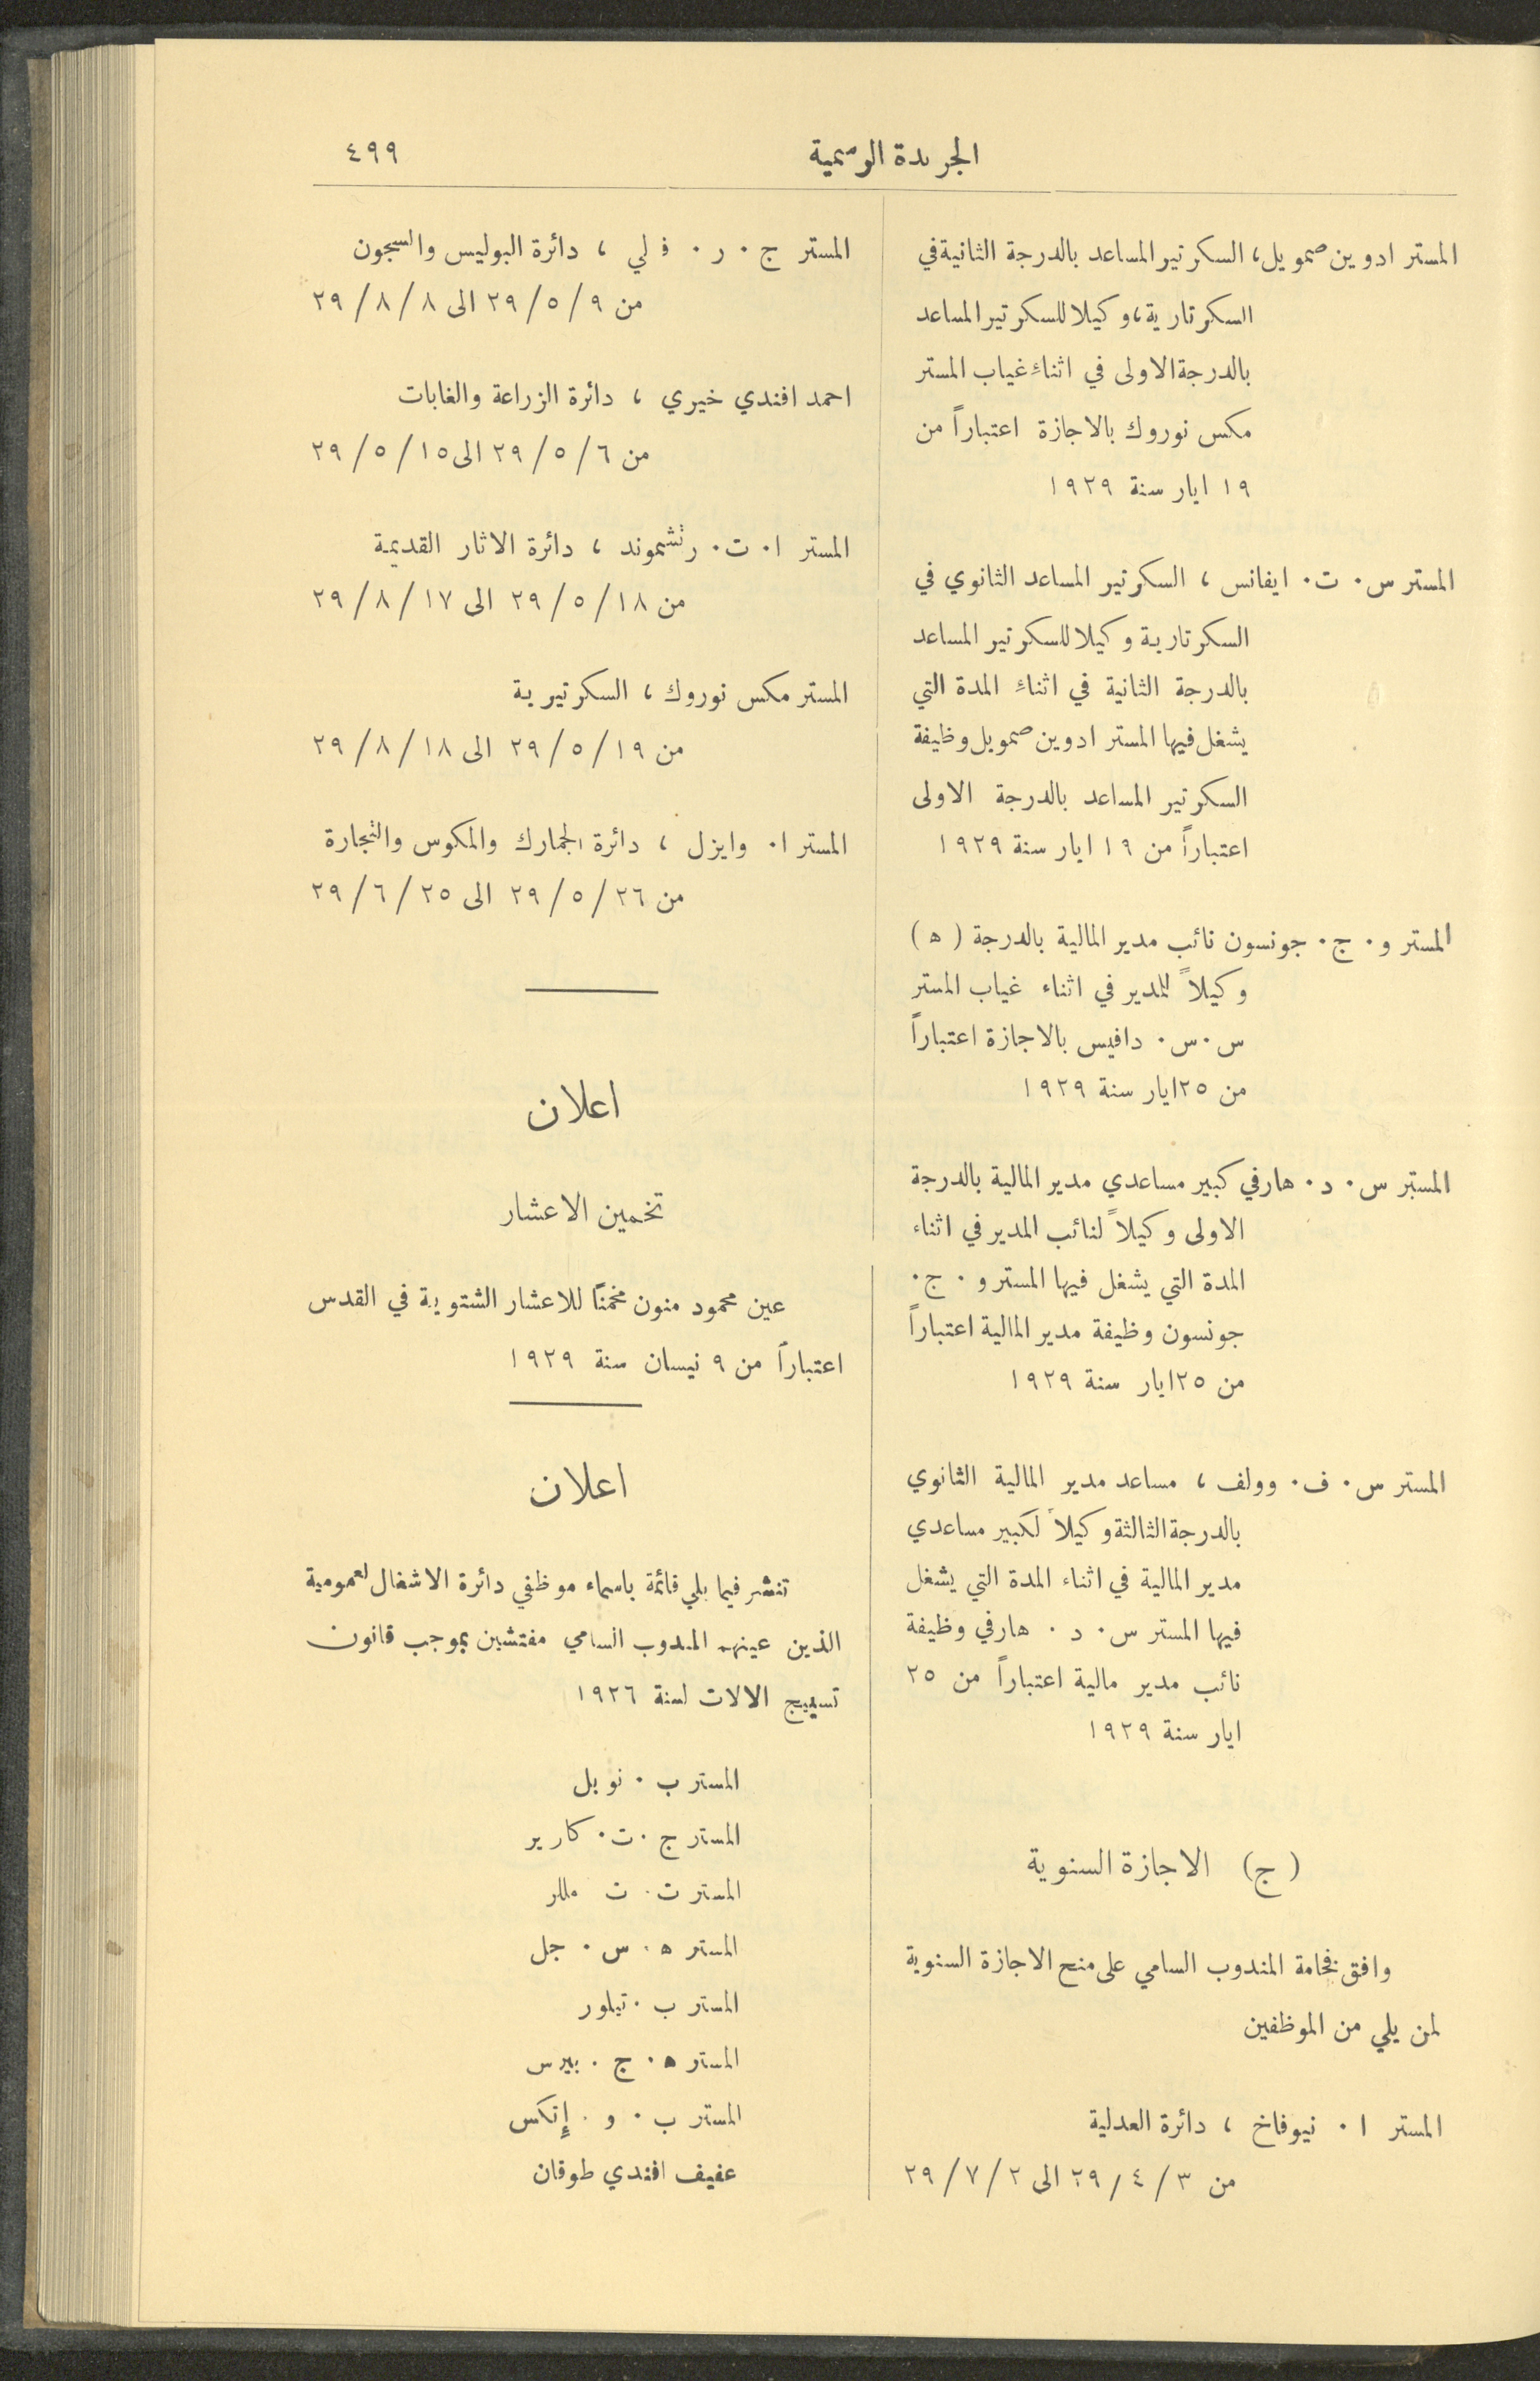 الجريدة الرسمية
٤٩٩
المستر ادوين صمويل، السكرتير المساعد بالدرجة الثانية في
السكرتارية، وكيلا للسكرتير المساعد
بالدرجة الاولى في اثناء غياب المستر
مكس نوروك بالاجازة اعتباراً من
١٩ ايار سنة ١٩٢٩
المستر س. ت. ايفانس، السكرتير المساعد الثانوي في
السكرتارية وكيلا للسكرتير المساعد
بالدرجة الثانية في اثناء المدة التي
يشغل فيها المستر ادوين صمويل وظيفة
السكرتير المساعد بالدرجة الاولى
اعتباراً من ١٩ ايار سنة ١٩٢٩
المستر و. ج. جونسون نائب مدير المالية بالدرجة (ه)
وكيلاً للمدير في اثناء غياب المستر
س. س. دافيس بالاجازة اعتباراً
من ٢٥ ايار سنة ١٩٢٩
المستر س. د. هارفي كبير مساعدي مدير المالية بالدرجة
الاولى وكيلاً لنائب المدير في اثناء
المدة التي يشغل فيها المستر و. ج.
جونسون وظيفة مدير المالية اعتباراً
من ٢٥ ايار سنة ١٩٢٩
المستر س. ف. وولف، مساعد مدير المالية الثانوي
بالدرجة الثالثة وكيلاً لكبير مساعدي
مدير المالية في اثناء المدة التي يشغل
فيها المستر س. د. هارفي وظيفة
نائب مدير مالية اعتباراً من ٢٥
ايار سنة ١٩٢٩
(ج) الاجازة السنوية
وافق فخامة المندوب السامي على منح الاجازة السنوية
لمن يلي من الموظفين
المستر ا. نيوفاخ، دائرة العدلية
من ٣/٤/٢٩ الى ٢/٧/٢٩
المستر ج. ر. ف لي، دائرة البوليس والسجون
من ٩/٥/٢٩ الى ٨/٨/٢٩
احمد افندي خيري، دائرة الزراعة والغابات
من ٦/٥/٢٩ الى ١٥/٥/٢٩
المستر ا. ت. رتشموند، دائرة الاثار القديمة
من ١٨/٥/٢٩ الى ١٧/٨/٢٩
المستر مكس نوروك، السكرتيرية
من ١٩/٥/٢٩ الى ١٨/٨/٢٩
المستر ا. وايزل، دائرة الجمارك والمكوس والتجارة
من ٢٦/٥/٢٩ الى ٢٥/٦/٢٩
اعلان
تخمين الاعشار
عين محمود منون مخمناً للاعشار الشتوية في القدس
اعتباراً من ٩ نيسان سنة ١٩٢٩
اعلان
تنشر فيما يلي قائمة باسماء موظفي دائرة الاشغال العمومية
الذين عينهم المندوب السامي مفتشين بموجب قانون
تسييج الالات لسنة ١٩٢٦
المستر ب. نوبل
المستر ج. ت. كارير
المستر ت. ت ملار
المستر ه. س. جل
المستر ب. تيلور
المستر ه. ج. بيرس
المستر ب. و. إتكس
عفيف افندي طوقان